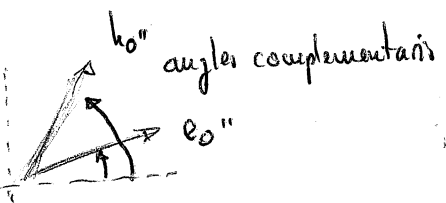 h₀"
angles complementaris
e₀"